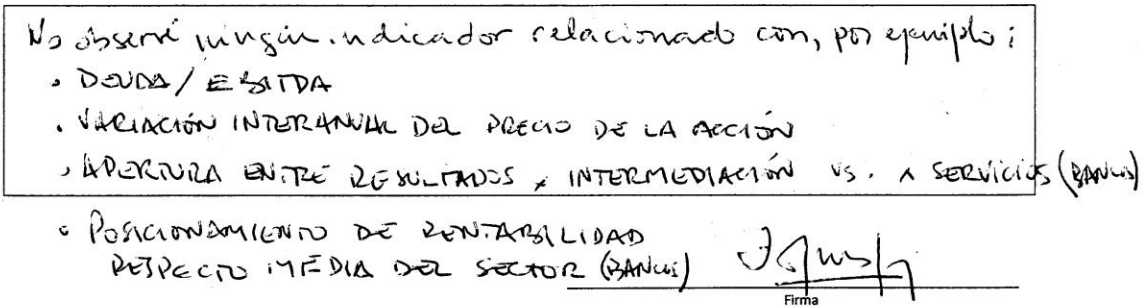 No observé ningún indicador relacionado con, por ejemplo:
• DEUDA / EBITDA
• VARIACIÓN INTERANUAL DEL PRECIO DE LA ACCIÓN
• APERTURA ENTRE RESULTADOS x INTERMEDIACIÓN VS. x SERVICIOS (BANCOS)
• POSICIONAMIENTO DE RENTABILIDAD
RESPECTO MEDIA DEL SECTOR (BANCOS)
Firma